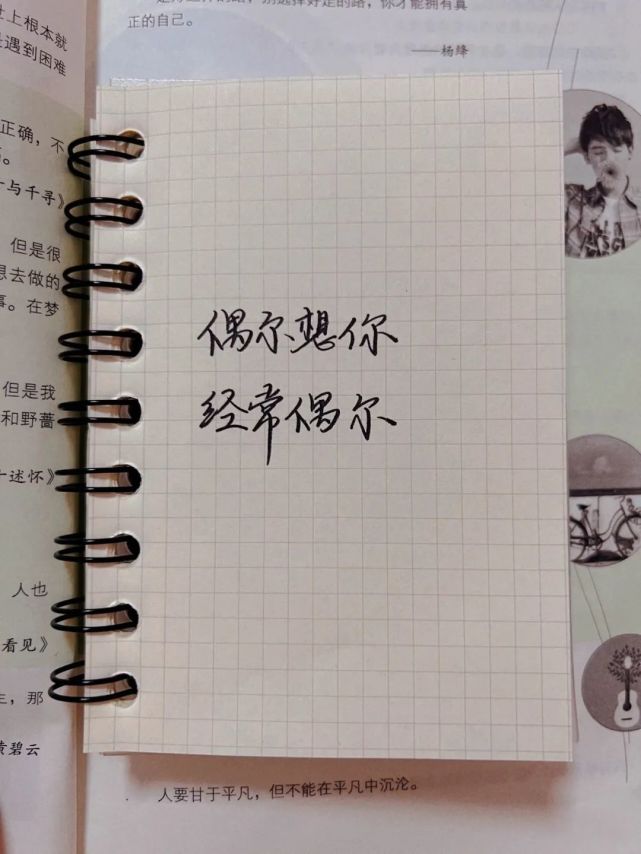 上根本就
遇到困难
正确，不
与千寻》
但是很
想去做的
事。在梦
但是我
和野蔷
迷怀》
人也
看见》
生，那
黄碧云
路，别选择好走的路，你才能拥有真
正的自己。
——杨绛
偶尔想你
经常偶尔
人要甘于平凡，但不能在平凡中沉沦。